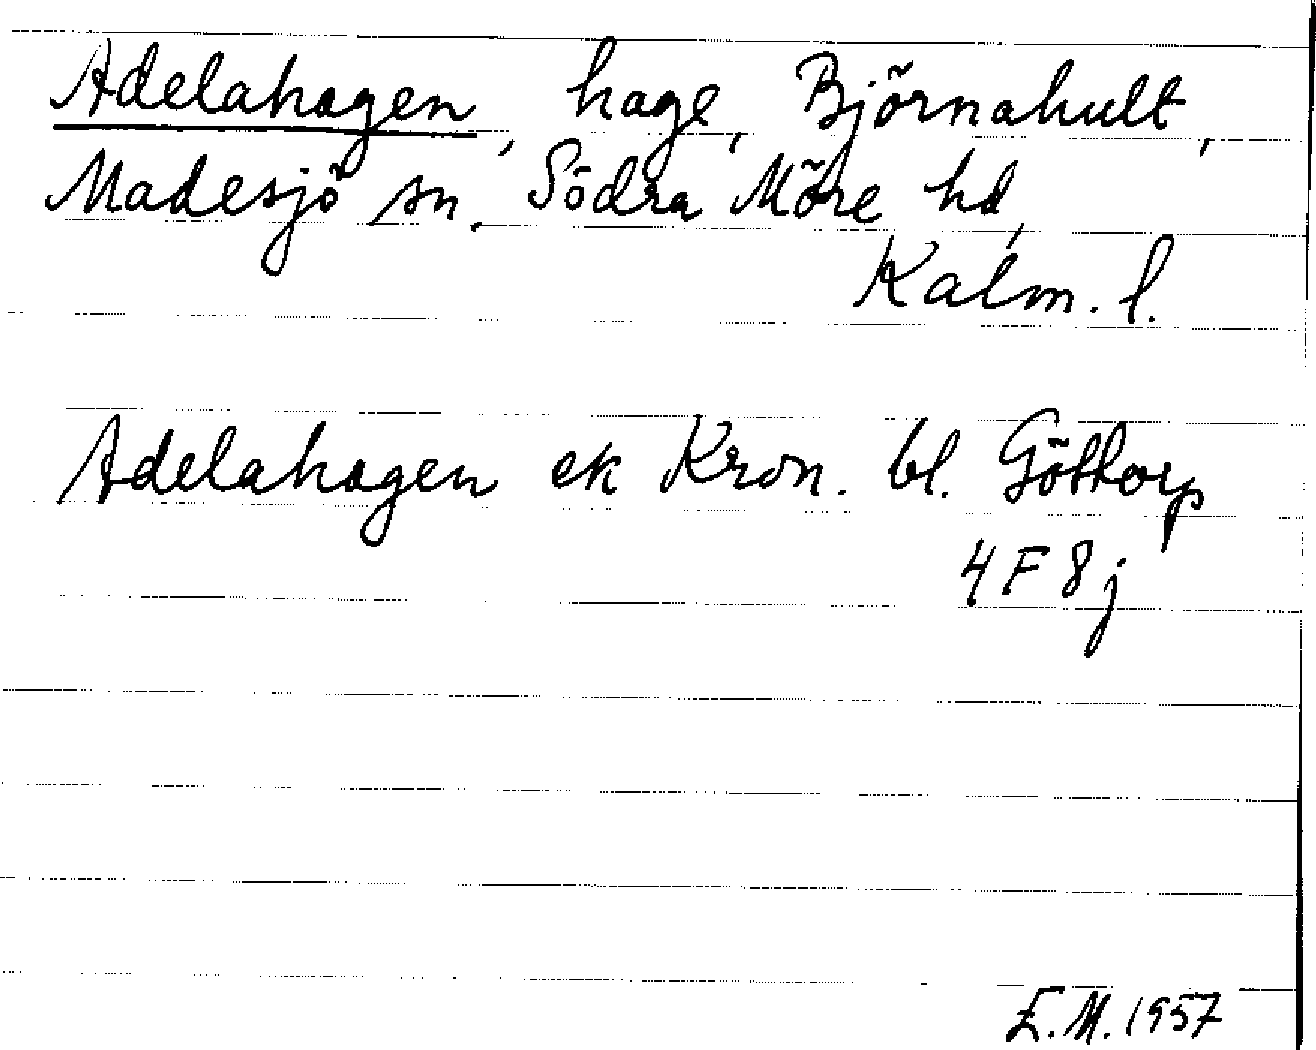 Adelahagen, hage, Björnahult,
Madesjö sn. Södra Möre hd,
Kalm. l.
Adelahagen ek Kron. bl. Göttorp
4 F 8 j
E.M. 1957